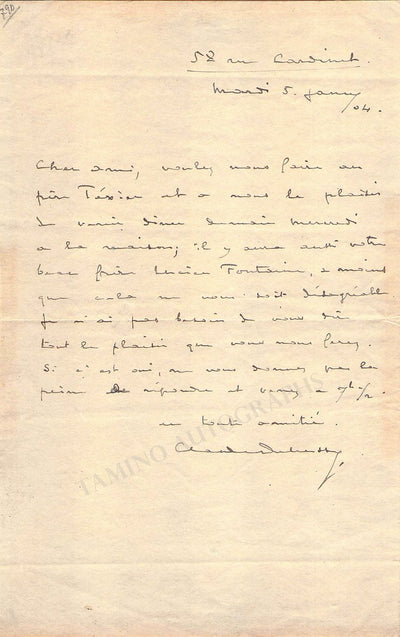 790
58 rue Cardinet.
Mardi 5. Janv
/04.
Cher ami, voulez vous faire au
père Texier et à nous le plaisir
de venir dîner demain mercredi
à la maison; il y aura aussi votre
beau frère Lucien Fontaine, à moins
que cela ne vous soit désagréable
Je n'ai pas besoin de vous dire
tout le plaisir que vous nous ferez.
Si c'est oui, ne vous donnez pas la
peine de répondre et venez à 7h 1/2.
en toute amitié.
Claude Debussy
TAMINO AUTOGRAPHS